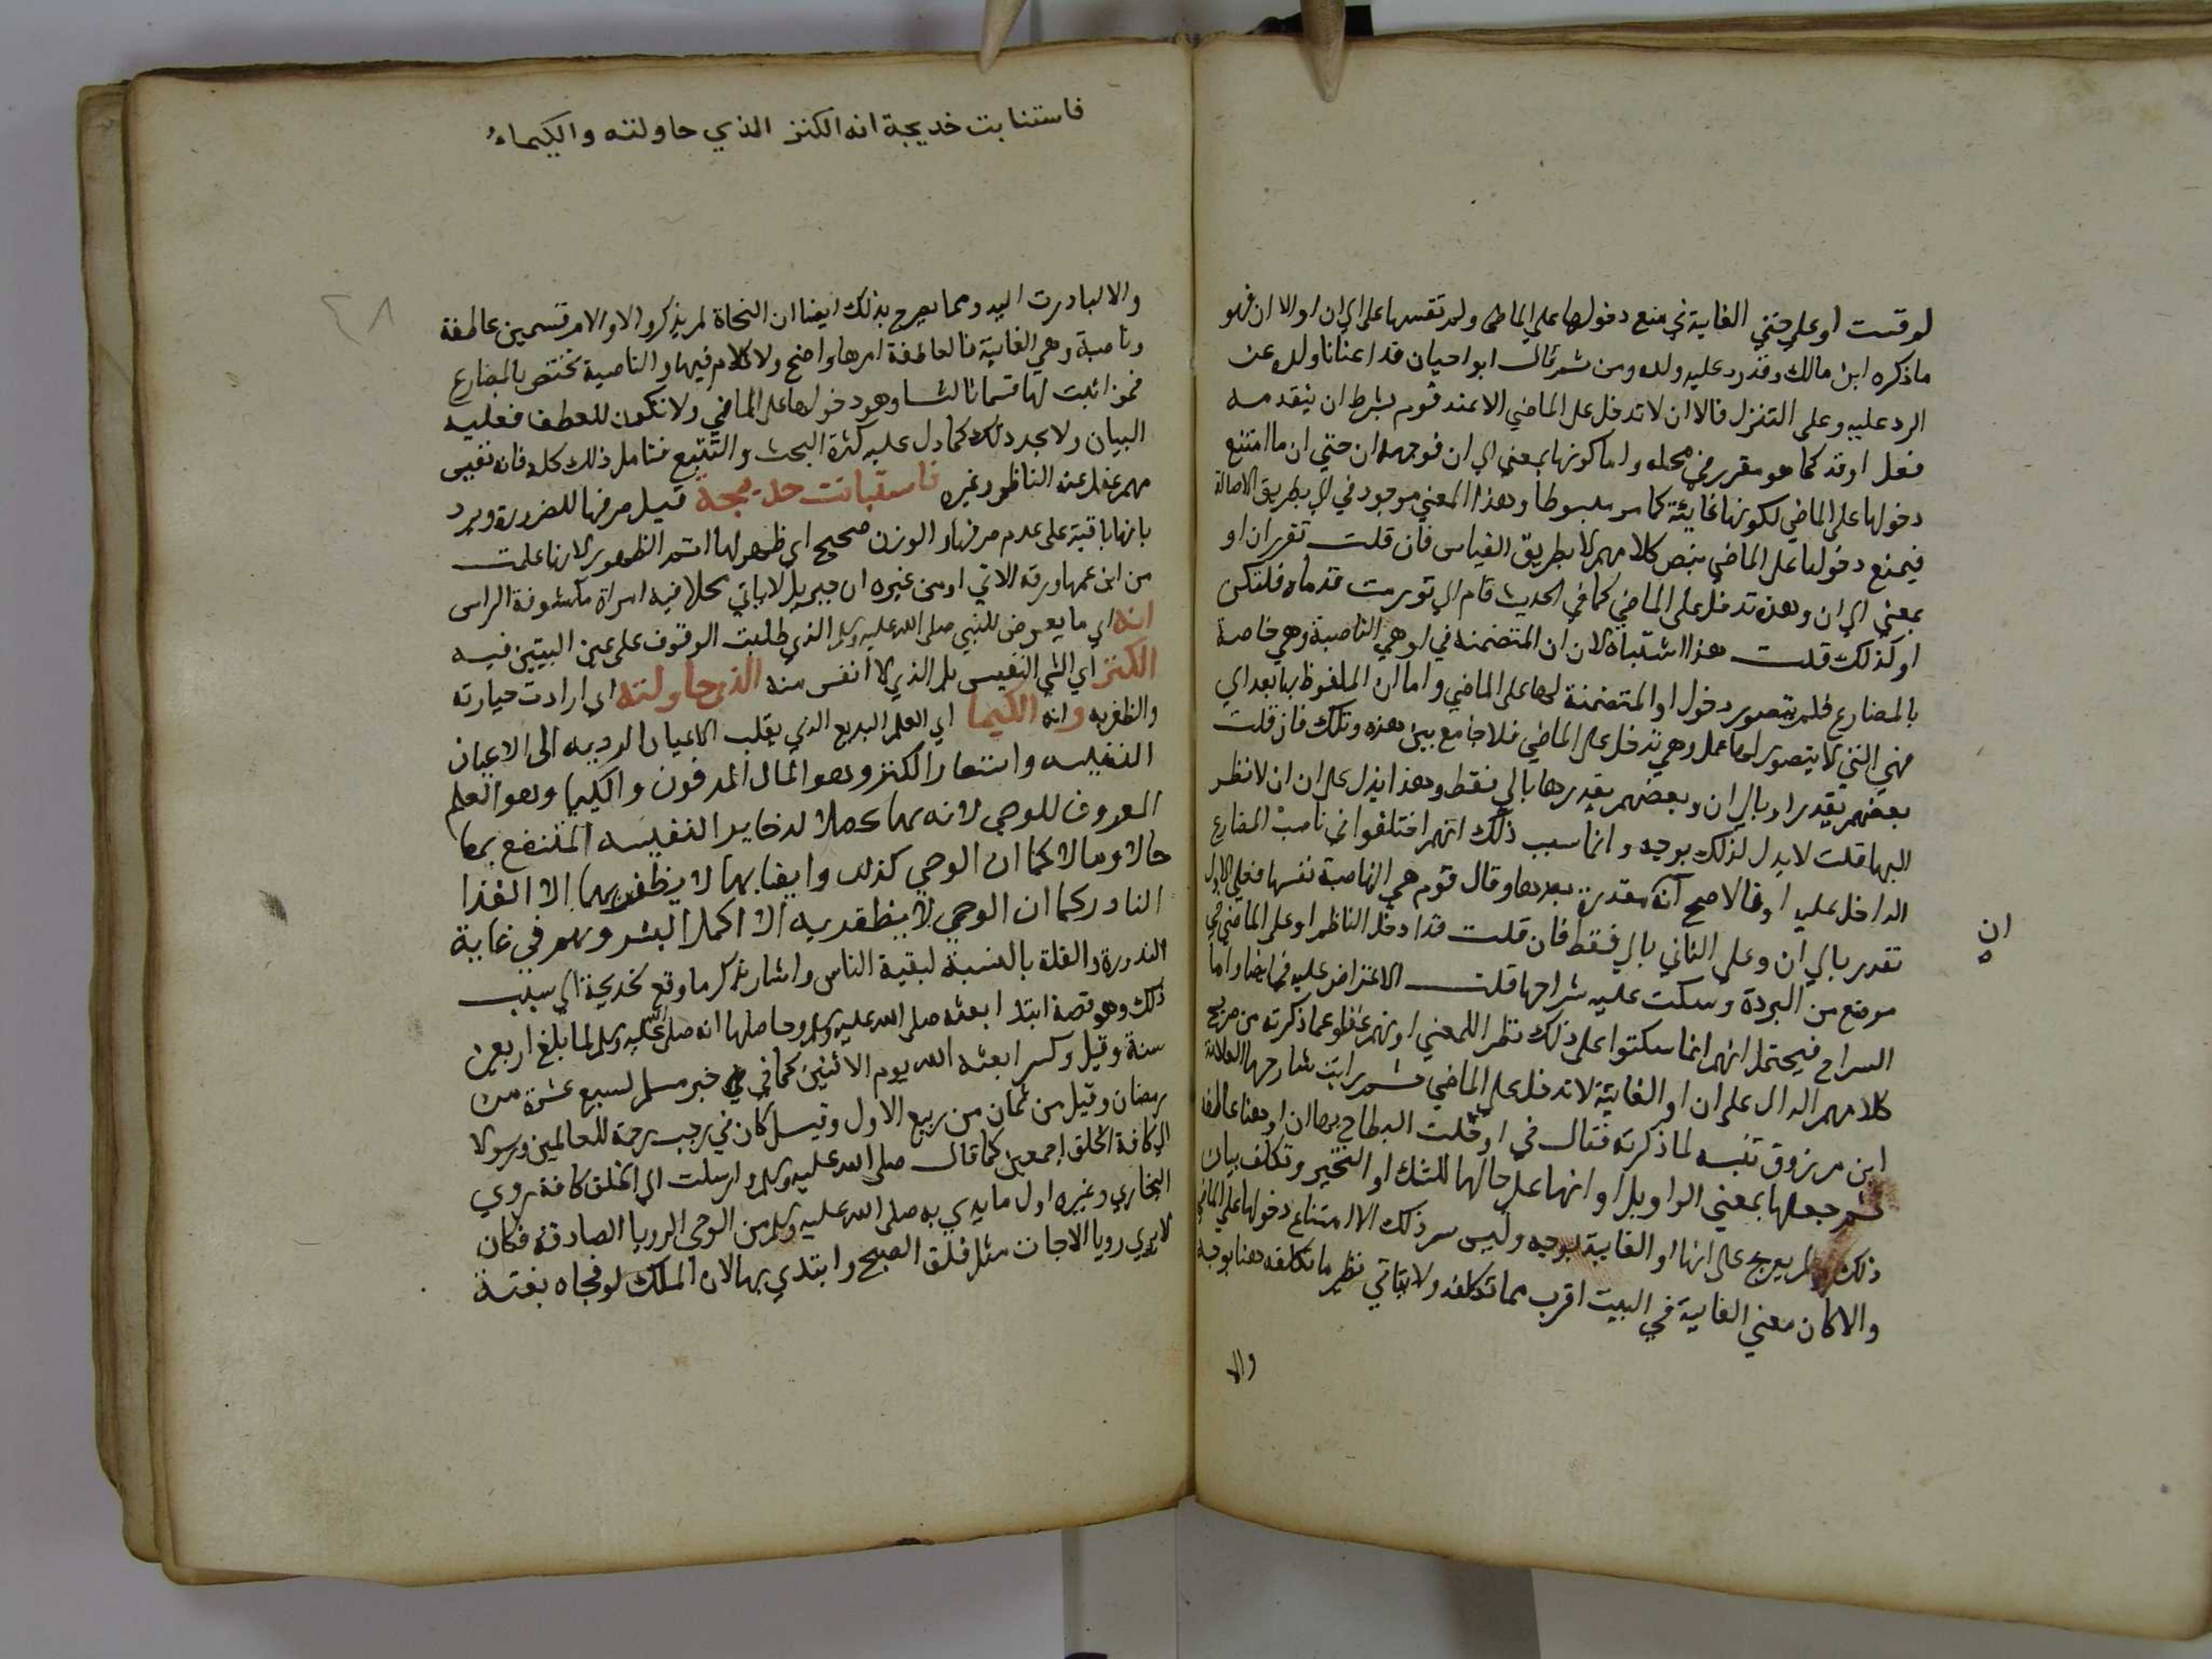 لو قست او على حتي الغاية في منع دخولها على الماضي ولم تقسها على الى ان او الا ان فهو
ما ذكره ابن مالك وقد رد عليه ولده ومن ثم قال ابو احيان قد اعنانا ولده عن
الرد عليه وعلى التنزل فالا ان لا تدخل على الماضي الا عند قوم بشرط ان يتقدمه
فعل او قد كما هو مقرر في محله واما كونها بمعني الي ان فوجهه ان حتي ان ما امتنع
دخولها على الماضي لكونها غايئة كما مر مبسوطا وهذا المعني موجود في الي بطريق الاصالة
فيمنع دخولها على الماضي بنص كلامهم لا بطريق القياس فان قلت تقرر ان او
بمعني الي ان وهذه تدخل على الماضي كما في الحديث قام الي تورمت قدماه فلتكن
او كذلك قلت هذا اشتباه لان ان المتضمنه في او هي الناصبة وهي خاصة
بالمضارع فلم يتصور دخول او المتضمنة لها على الماضي واما ان الملفوظ بها بعد اي
فهي التي لا يتصور لها عمل وهي تدخل على الماضي فلا جامع بين هذه وتلك فان قلت
بعضهم يقدر او بالي ان وبعضهم يقدرها بالي فقط وهذا يدل على ان ان لا نظر
اليها قلت لا يدل لذلك بوجه وانما سبب ذلك انهم اختلفوا في ناصب المضارع
الداخل عليه او فالاصح انه مقدرة بعدها وقال قوم هي الناصبة نفسها فعلي الاول
ان
تقدر بالي ان وعلى الثاني بالي فقط فان قلت قد ادخل الناظم او على الماضي في
موضع من البردة وسكت عليه شراحها قلت الاعتراض عليه فيها ايضا واما
السراح فيحتمل انهم انما سكتوا على ذلك نظرا للمعني او نهم غفلوا عما ذكرته من صريح
كلامهم الدال على ان او الغائية لا تدخل على الماضي ثم رايت شارحها العلامة
ابن مرزوق تنبه لما ذكرته فقال في او قلت البطاح بها ان او هنا عاطفة
ثم جعلها بمعني الواو بل او انها على حالها للشك او التخير وتكلف بيان
ذلك ولم يعرج على انها او الغاية بوجه وليس سر ذلك الا امتناع دخولها على الماضي
والا كان معني الغاية في البيت اقرب مما تكلفه ولا يتاتي نظير ما تكلفه هنا بوجه
والا
فاستنابت خديجة انه الكنز الذي حاولته والكيماءُ
والا لبادرت اليه ومما يصرح بذلك ايضا ان النحاة لم يذكروا لاو الا مرتسمين عاطفة
وناصبة وهي الغايية فالعاطفة امرها واضح ولا كلام فيها والناصبة تختص بالمضارع
فمن اثبت لها قسما ثالثا وهو دخولها على الماضي ولا تكون للعطف فعليه
البيان ولا يجد ذلك كما دل عليه كثرة البحث والتتبع فتامل ذلك كله فانه نفيس
مهم غفل عنه الناظم وغيره فاستبانت خديجة قيل صرفها للضرورة ويرد
بانها باقية على عدم صرفها والوزن صحيح اي ظهر لها اتم الظهور لانها علمت
من ابن عمها ورقة الاتي او من غيره ان جبريل لا ياتي محلا فيه امراة مكشوفة الراس
انه اي ما يعرض للنبي صلى الله عليه وسلم الذي طلبت الوقوف على عين اليقين فيه
الكنز اي الشي النفيس بل الذي لا انفس منه الذي حاولته اي ارادت حيازته
والظفر به وانه الكيما اي العلم البديع الذي يقلب الاعيان الرديه الى الاعيان
النفيسه واستعار الكنز وهو المال المدفون والكيميا وهو العلم
المعروف للوحي لانه بهما تحصلا لدخاير النفيسه المنتفع بها
حالا ومالا كما ان الوحي كذلك وايضا بهما لا يظفر بهما الا الفذا
النادر كما ان الوحي لا ينظقر به الا اكمل البشر وهم في غاية
الندورة والقلة بالنسبة لبقية الناس واشار بذكر ما وقع لخديجة الي سبب
ذلك وهو قصة ابتدا بعثه صلى الله عليه وسلم وحاصلها انه صلى الله عليه وسلم لما بلغ اربعين
سنة وقيل وكسر ابعثه الله يوم الاثنين كما في خبر مسلم لسبع عشرة من
رمضان وقيل من ثمان من ربيع الاول وقيل كان في رجب رحمة للعالمين ورسولا
الي كافة الخلق اجمعين كما قال صلى الله عليه وسلم وارسلت الى الخلق كافة روي
البخاري وغيره اول ما بدي به صلى الله عليه وسلم من الوحي الرويا الصادقة فكان
لا يري رويا الا جات مثل فلق الصبح وابتدي بها لان الملك لو فجاه بغتة